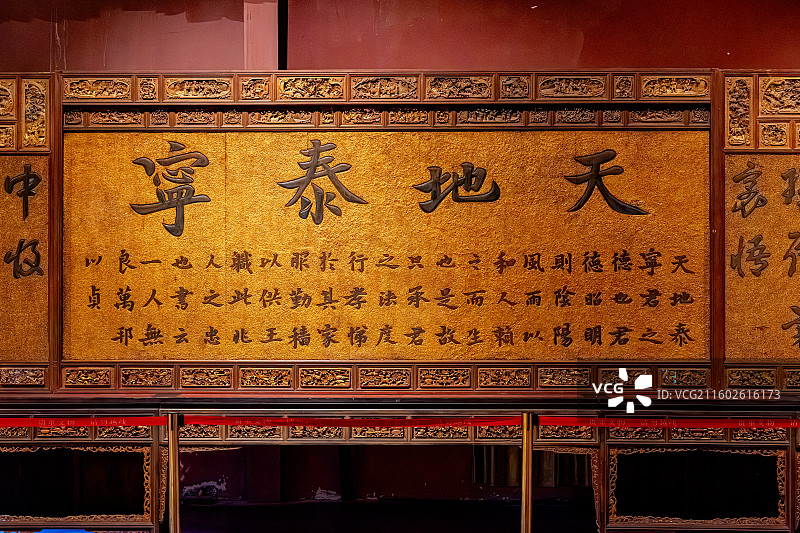 天地泰寧
天地泰
寧君之
德也君
德昭明
則陰陽
風雨以
和人賴
之而生
也是故
只承君
之法度
行孝悌
於其家
服勤穡
以供王
職此兆
人之忠
也書云
一人無
良萬邦
以貞
中
VCG
VCG211602616173